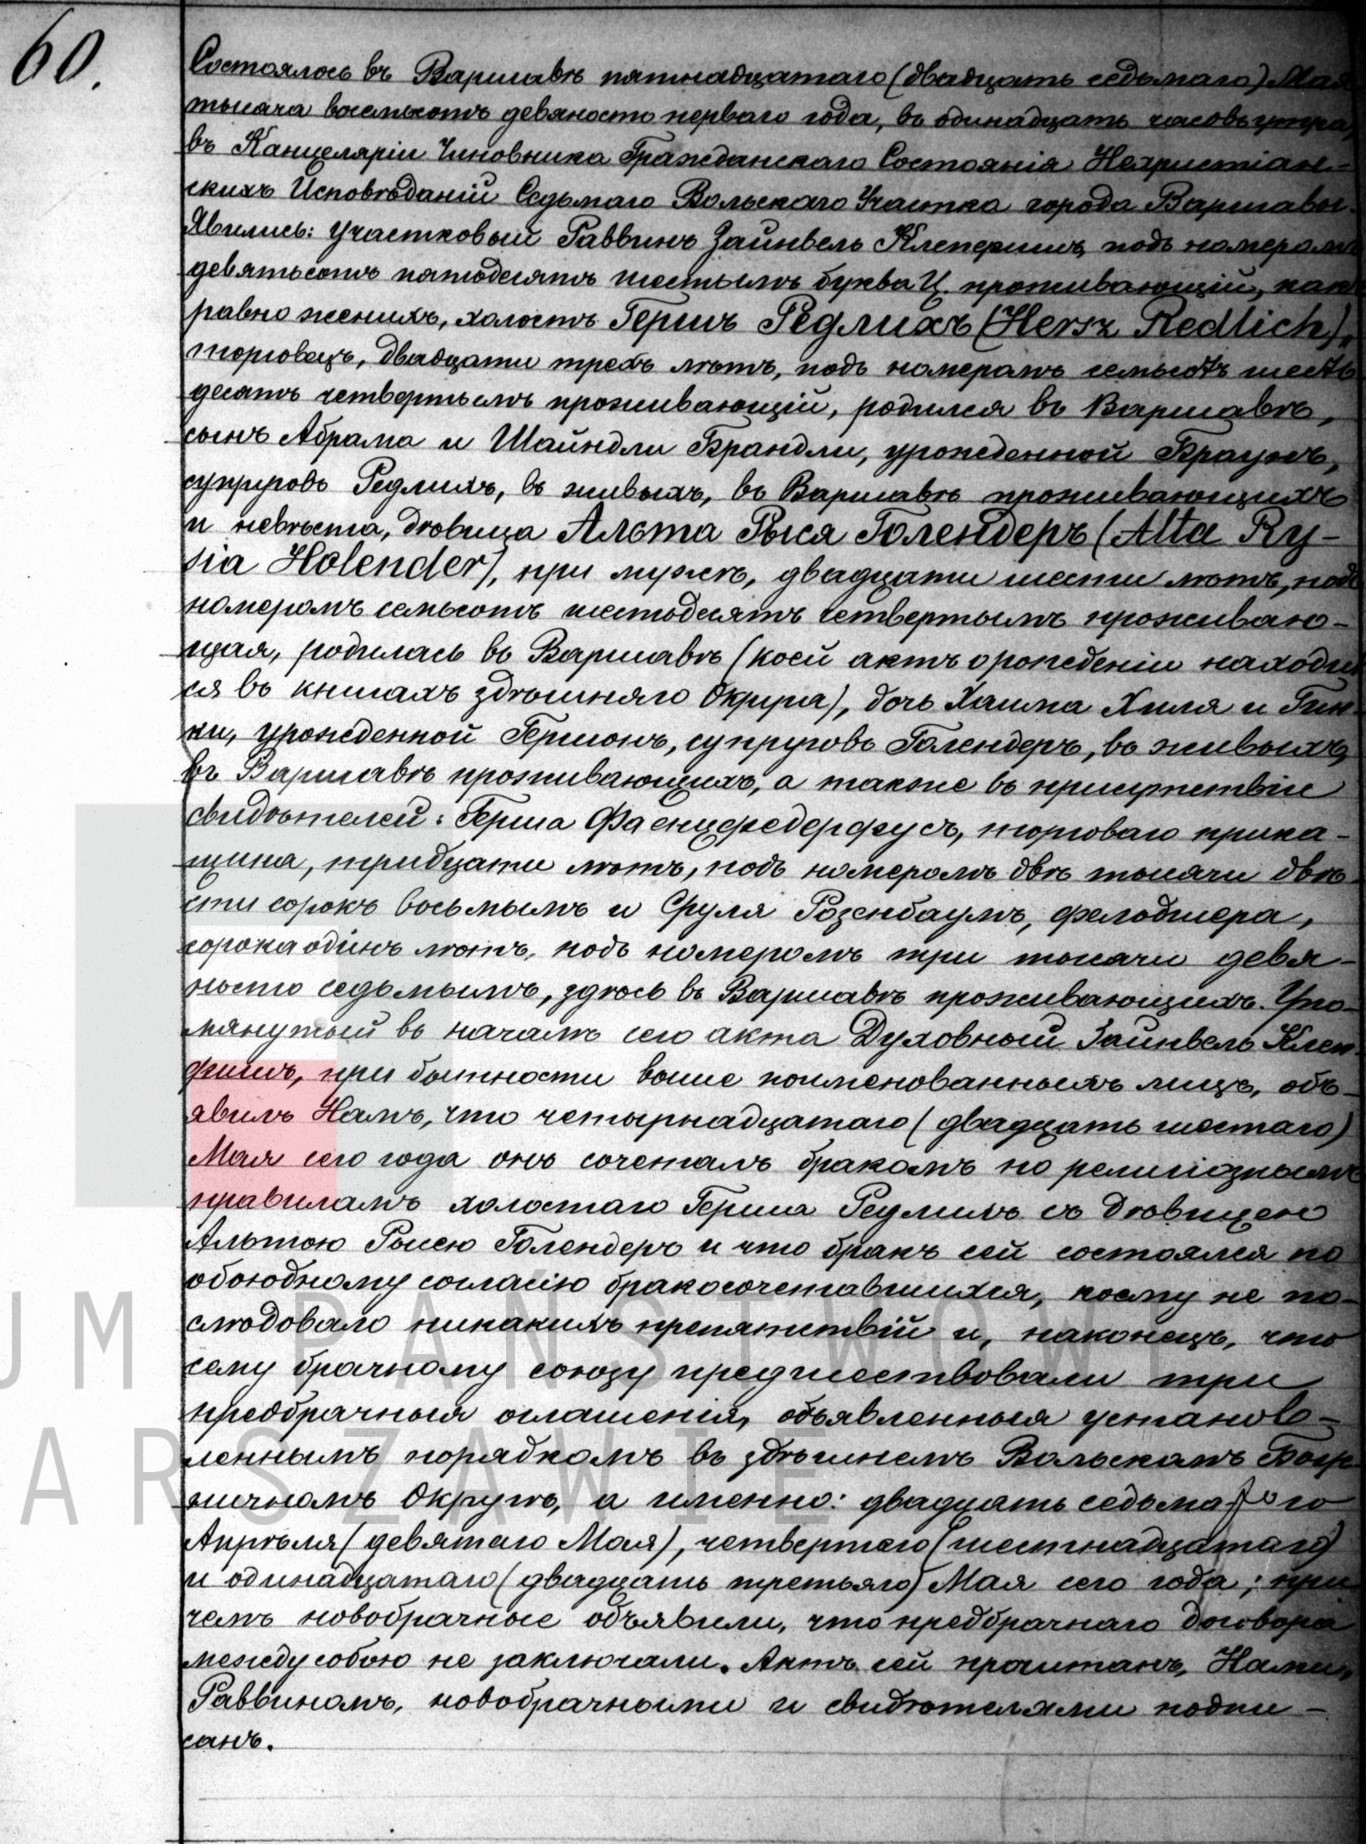 60.
Состоялось въ Варшавѣ пятнадцатаго (двадцать седьмаго) Мая
тысяча восемьсотъ девяносто перваго года, въ одинадцать часовъ утра,
въ Канцеляріи Чиновника Гражданскаго Состоянія Нехристіан-
скихъ Исповѣданій Седьмаго Вольскаго Участка города Варшавы.
Явились: Участковый Раввинъ Зайнвель Клепфишъ, подъ номеромъ
девятьсотъ пятьдесятъ шестымъ буква Ц. проживающій, какъ
равно женихъ, холостъ Гершъ Редлихъ (Hersz Redlich),
торговецъ, двадцати трехъ лѣтъ, подъ номеромъ семьсотъ шесть
десятъ четвертымъ проживающій, родился въ Варшавѣ,
сынъ Абрама и Шайндли Брандли, урожденной Браунъ,
супруговъ Редлихъ, въ живыхъ, въ Варшавѣ проживающихъ
и невѣста, дѣвица Альта Рыся Голендеръ (Alta Ry-
sia Holender), при мужѣ, двадцати шести лѣтъ, подъ
номеромъ семьсотъ шестьдесятъ четвертымъ проживаю-
щая, родилась въ Варшавѣ (коей актъ о рожденіи находит
ся въ книгахъ здѣшняго Округа), дочь Хаима Хиля и
урожденной супруговъ Голендеръ, въ живыхъ,
въ Варшавѣ проживающихъ, а также въ присутствіи
свидѣтелей: Герша Фаенцфедерфусъ, торговаго прика-
щика, тридцати лѣтъ, подъ номеромъ двѣ тысячи двѣ
сти сорокъ восьмымъ и Сруля Розенбаумъ, фелдшера,
сорока одінъ лѣтъ, подъ номеромъ три тысячи девя-
носто седьмымъ, здѣсь въ Варшавѣ проживающихъ. Упо-
мянутый въ началѣ сего акта Духовный Зайнвель Клеп
фишъ, при бытности выше поименованныхъ лицъ, объ-
явилъ Намъ, что четырнадцатаго (двадцать шестаго)
Мая сего года онъ сочеталъ бракомъ по религіознымъ
правиламъ холостаго Герша Редлихъ съ дѣвицею
Альтою Рысею Голендеръ и что бракъ сей состоялся по
обоюдному согласію бракосочетавшихся, коему не по-
слѣдовало никакихъ препятствій и, наконецъ, что
сему брачному союзу предшествовали три
предбрачныя оглашенія, объявленныя установ-
леннымъ порядкомъ въ здѣшнемъ Вольскомъ Бож
ничномъ Округѣ, а именно: двадцать седьмаго
Апрѣля (девятаго Мая), четвертаго (шестнадцатаго)
и одинадцатаго (двадцать третьяго) Мая сего года; при
чемъ новобрачные объявили, что предбрачнаго договора
между собою не заключали. Актъ сей прочитанъ, Нами,
Раввиномъ, новобрачными и свидѣтелями подпи-
санъ.
UM PAŃSTWOWE
ARSZAWIE